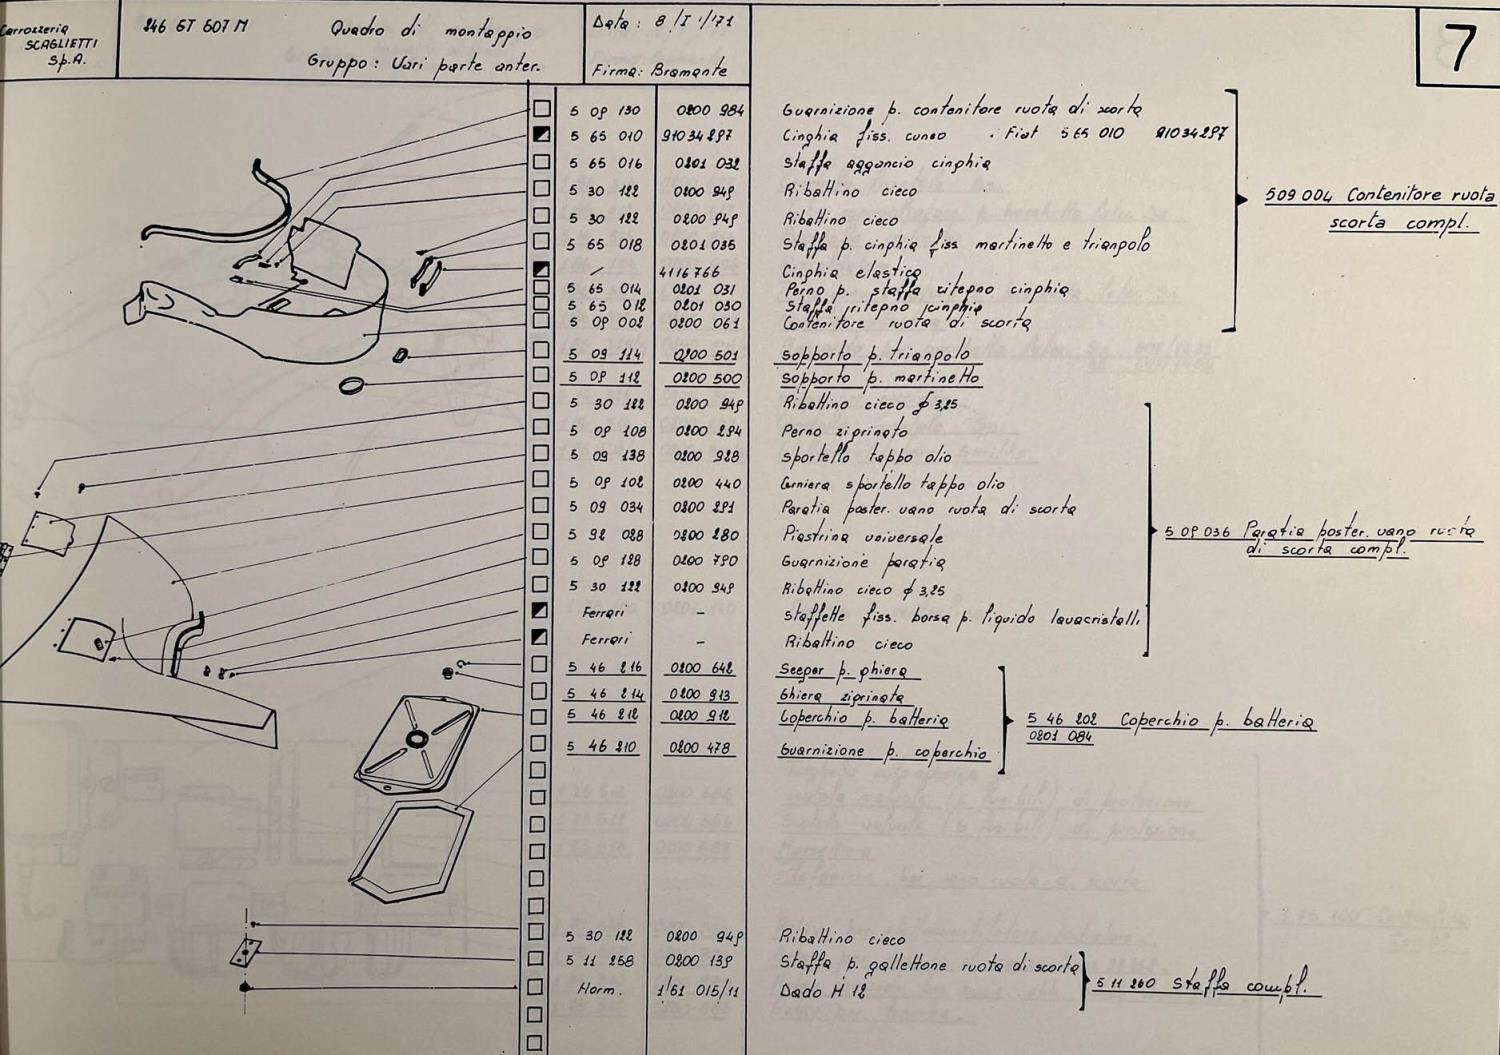 Carrozzeria
SCAGLIETTI
S.p.A.
246 GT 607 M
Quadro di montaggio
Gruppo: Vari parte anter.
Data: 8/I°/'71
Firma: Bramante
7
5 09 130 0200 984 Guarnizione p. contenitore ruota di scorta
5 65 010 91034297 Cinghia fiss. cuneo : Fiat 5 65 010 91034297
5 65 016 0201 032 Staffa aggancio cinghia
5 30 122 0200 949 Ribattino cieco
5 30 122 0200 949 Ribattino cieco
5 65 018 0201 035 Staffa p. cinghia fiss. martinetto e triangolo
/ 4116766 Cinghia elastica
5 65 014 0201 031 Perno p. staffa ritegno cinghia
5 65 012 0201 030 Staffa ritegno cinghia
5 09 002 0200 061 Contenitore ruota di scorta
509 004 Contenitore ruota
scorta compl.
5 09 114 0200 501 Sopporto p. triangolo
5 09 112 0200 500 Sopporto p. martinetto
5 30 122 0200 949 Ribattino cieco ϕ 3,25
5 09 108 0200 294 Perno zigrinato
5 09 138 0200 928 Sportello tappo olio
5 09 102 0200 440 Cerniera sportello tappo olio
5 09 034 0200 291 Paratia poster. vano ruota di scorta
5 92 028 0200 280 Piastrina universale
5 09 128 0200 790 Guarnizione paratia
5 30 122 0200 949 Ribattino cieco ϕ 3,25
Ferrari - Staffette fiss. borsa p. liquido lavacristalli
Ferrari - Ribattino cieco
5 09 036 Paratia poster. vano ruota
di scorta compl.
5 46 216 0200 642 Seeger p. ghiera
5 46 214 0200 913 Ghiera zigrinata
5 46 212 0200 912 Coperchio p. batteria
5 46 210 0200 478 Guarnizione p. coperchio
5 46 202 Coperchio p. batteria
0201 084
5 30 122 0200 949 Ribattino cieco
5 11 258 0200 139 Staffa p. gallettone ruota di scorta
Norm. 1/61 015/11 Dado M 12
5 11 260 Staffa compl.